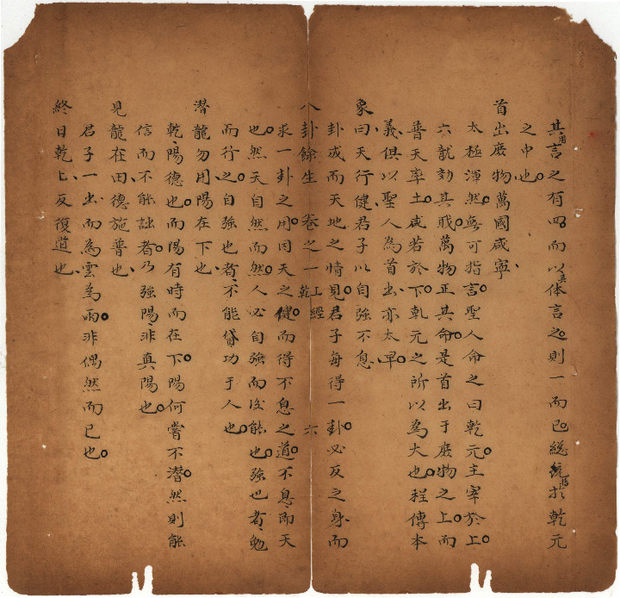 其用言之有四而以其体言之則一而已總統於乾元
之中也
首出庶物萬國咸寧
太極渾然無可指言聖人命之曰乾元主宰於上
六龍効其職萬物正其命是首出于庶物之上而
普天率土咸若於下乾元之所以為大也程傳本
義俱以聖人為首出亦太早
象曰天行健君子以自強不息
卦成而天地之情見君子每得一卦必反之身而
八卦餘生 卷之一 上經 乾 六
求一卦之用因天之健而得不息之道不息而天
也然天自然而然人必自強而後能也強也者勉
而行之自強也者不能貸功于人也
潛龍勿用陽在下也
乾陽德也而陽有時而在下陽何嘗不潛然則能
信而不能詘者乃強陽非真陽也
見龍在田德施普也
君子一出而為雲為雨非偶然而已也
終日乾乾反復道也